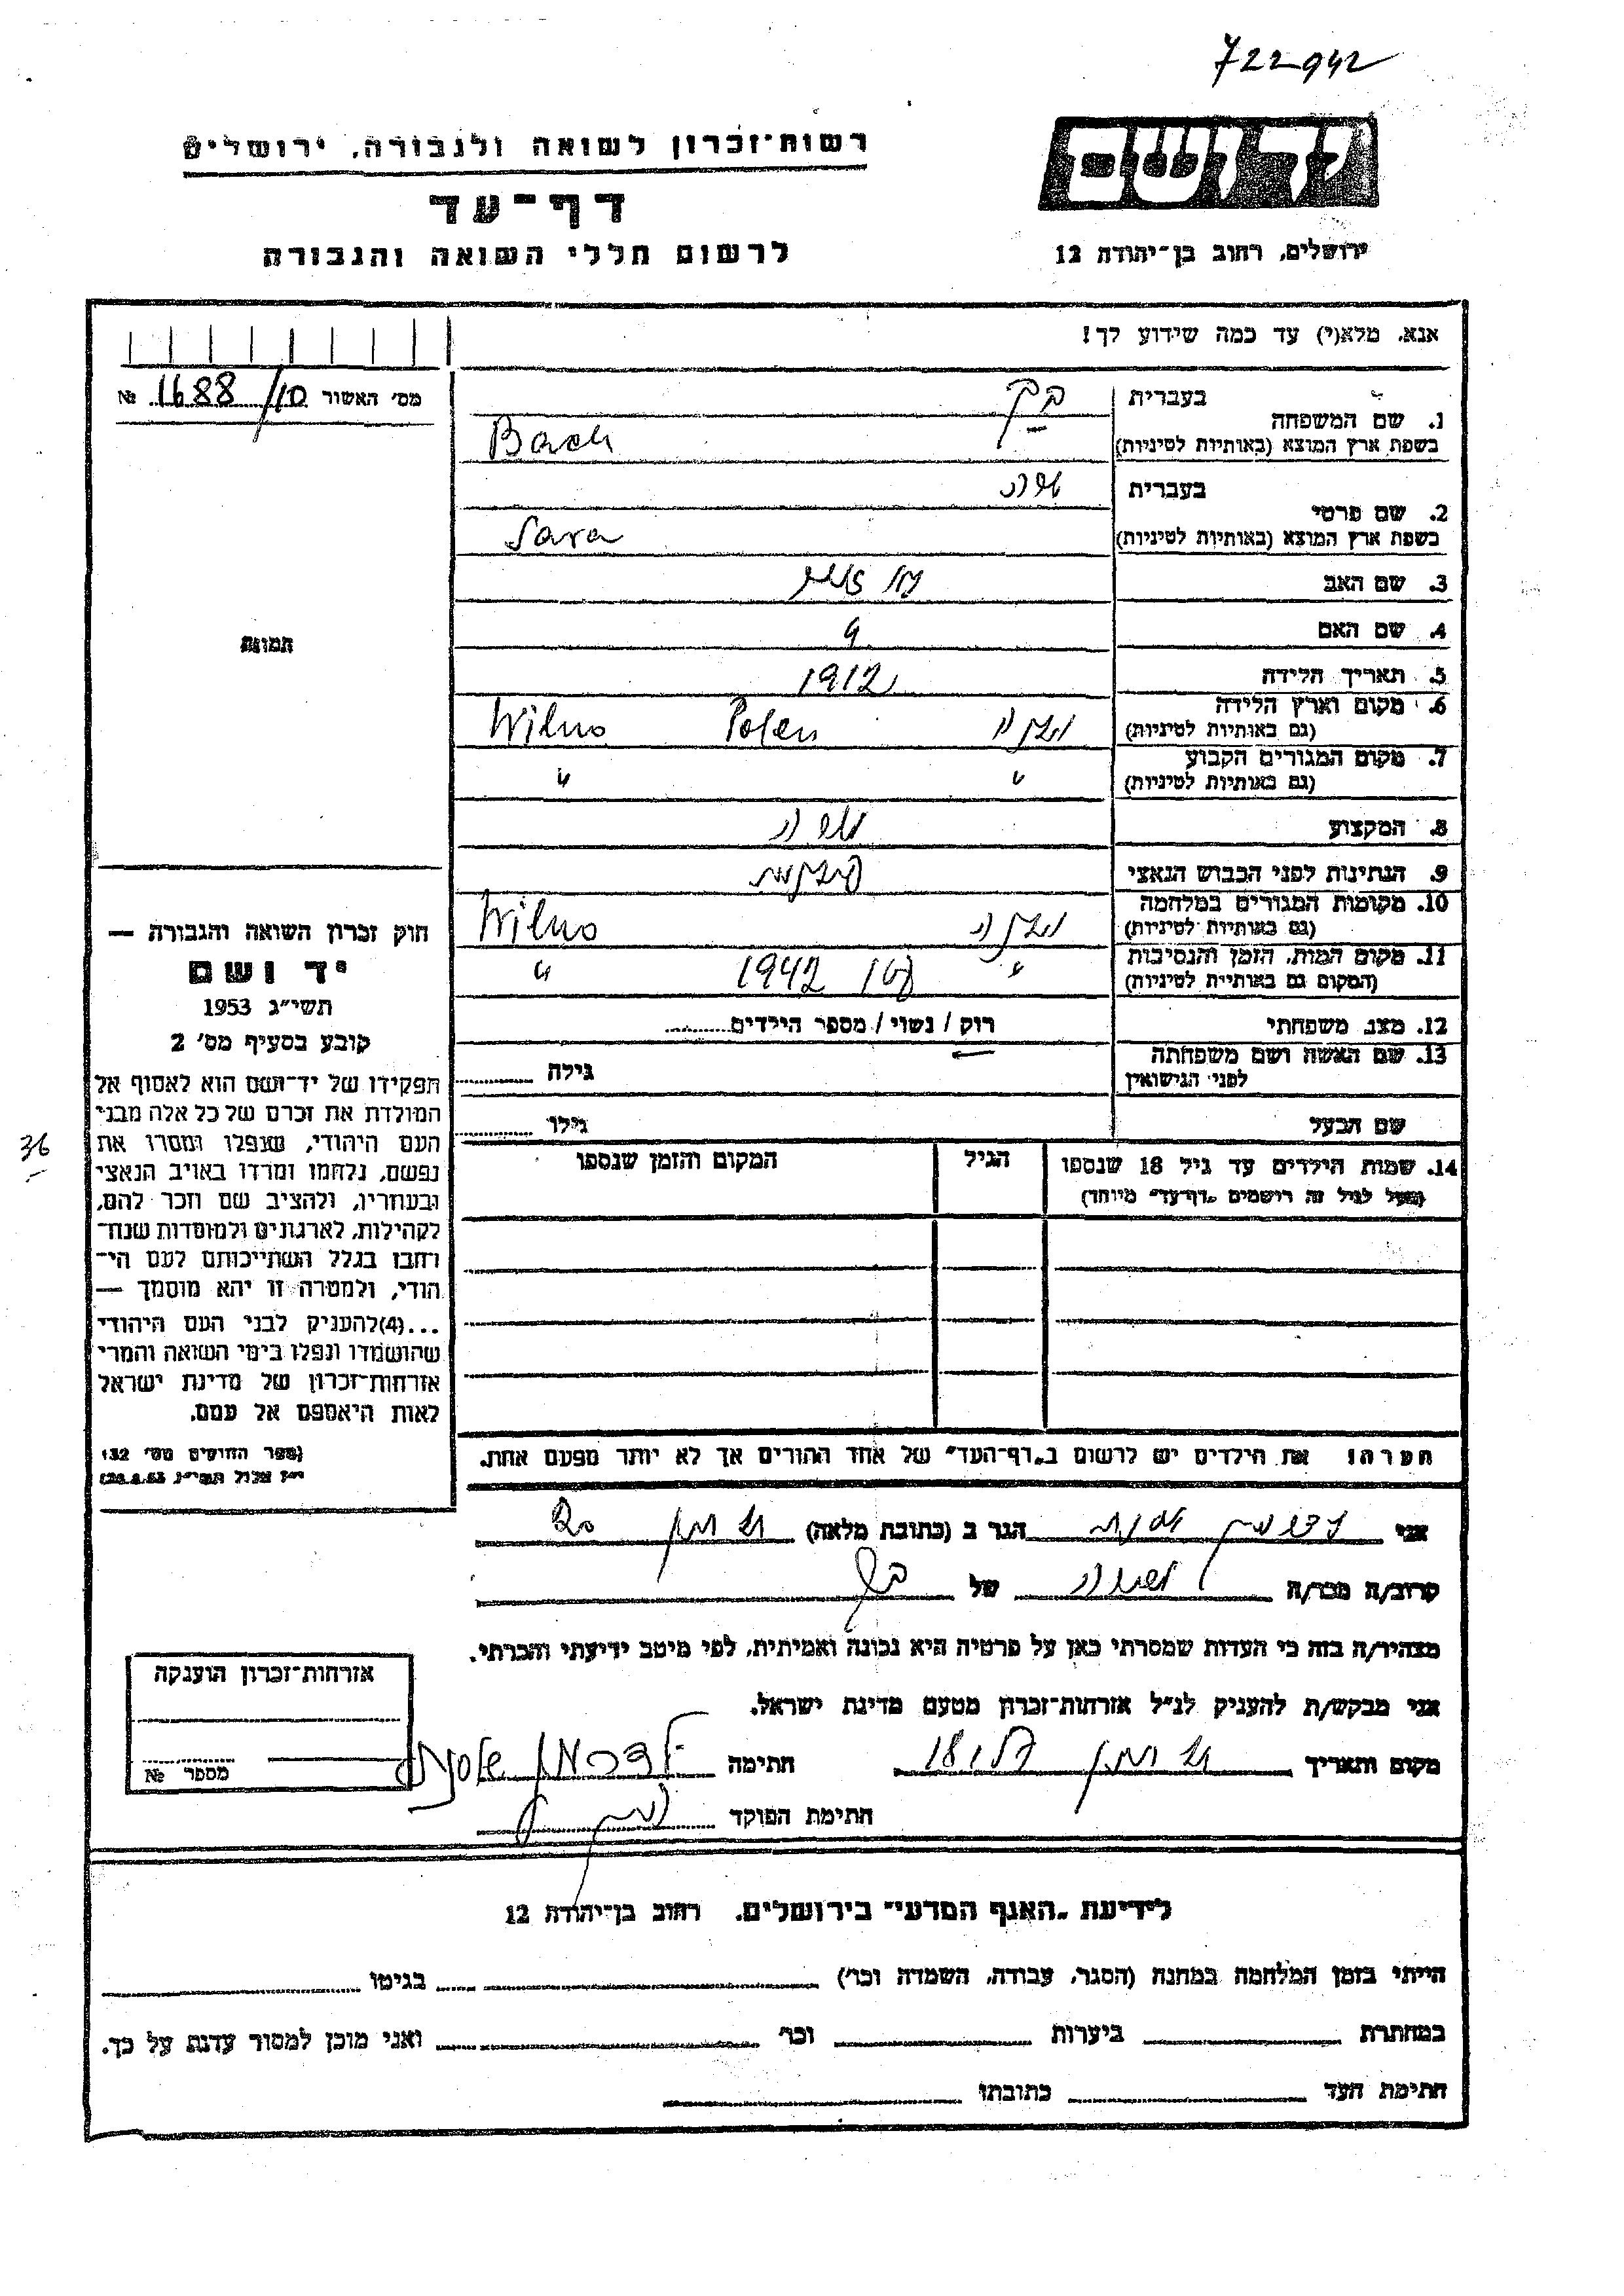 722942
רשות־זכרון לשואה ולגבורה, ירושלים
דף־עד
לרשום חללי השואה והגבורה
יד ושם
ירושלים, רחוב בן־יהודה 12
אנא, מלא(י) עד כמה שידוע לך!
מס' האשור 1688/10 №
תמונה
1. שם המשפחה
בעברית
בשפת ארץ המוצא (באותיות לטיניות) Bach
2. שם פרטי
בעברית שרה
בשפת ארץ המוצא (באותיות לטיניות) Sara
3. שם האב
4. שם האם
5. תאריך הלידה 1912
6. מקום וארץ הלידה
(גם באותיות לטיניות) וילנה Polen Wilno
7. מקום המגורים הקבוע
(גם באותיות לטיניות) " "
8. המקצוע
9. הנתינות לפני הכבוש הנאצי
10. מקומות המגורים במלחמה
(גם באותיות לטיניות) וילנה Wilno
11. מקום המות, הזמן והנסיבות
(המקום גם באותיות לטיניות) " 1942 "
12. מצב משפחתי רווק / נשוי / מספר הילדים
13. שם האשה ושם משפחתה
לפני הנישואין גילה
שם הבעל גילו
14. שמות הילדים עד גיל 18 שנספו הגיל המקום והזמן שנספו
(מעל לגיל זה רושמים "דף־עד" מיוחד)
חוק זכרון השואה והגבורה —
יד ושם
תשי"ג 1953
קובע בסעיף מס' 2
תפקידו של יד־ושם הוא לאסוף אל
המולדת את זכרם של כל אלה מבני
העם היהודי, שנפלו ומסרו את
נפשם, נלחמו ומרדו באויב הנאצי
ובעוזריו, ולהציב שם וזכר להם,
לקהילות, לארגונים ולמוסדות שנח־
רבו בגלל השתייכותם לעם הי־
הודי, ולמטרה זו יהא מוסמך —
...(4)להעניק לבני העם היהודי
שהושמדו ונפלו בימי השואה והמרי
אזרחות־זכרון של מדינת ישראל
לאות היאספם אל עמם.
(ספר החוקים מס' 132
י"ז אלול תשי"ג, 28.8.53)
36
הערה: את הילדים יש לרשום ב"דף־העד" של אחד ההורים אך לא יותר מפעם אחת.
אני הגר ב (כתובת מלאה)
קרוב/ה מכר/ה של
מצהיר/ה בזה כי העדות שמסרתי כאן על פרטיה היא נכונה ואמיתית, לפי מיטב ידיעתי והכרתי.
אני מבקש/ת להעניק לנ"ל אזרחות־זכרון מטעם מדינת ישראל.
מקום ותאריך חתימה
חתימת הפוקד
אזרחות־זכרון הוענקה
מספר №
לידיעת "האגף המדעי" בירושלים, רחוב בן־יהודה 12
הייתי בזמן המלחמה במחנה (הסגר, עבודה, השמדה וכו') בגיטו
במחתרת ביערות וכו' ואני מוכן למסור עדות על כך.
חתימת העד כתובתו